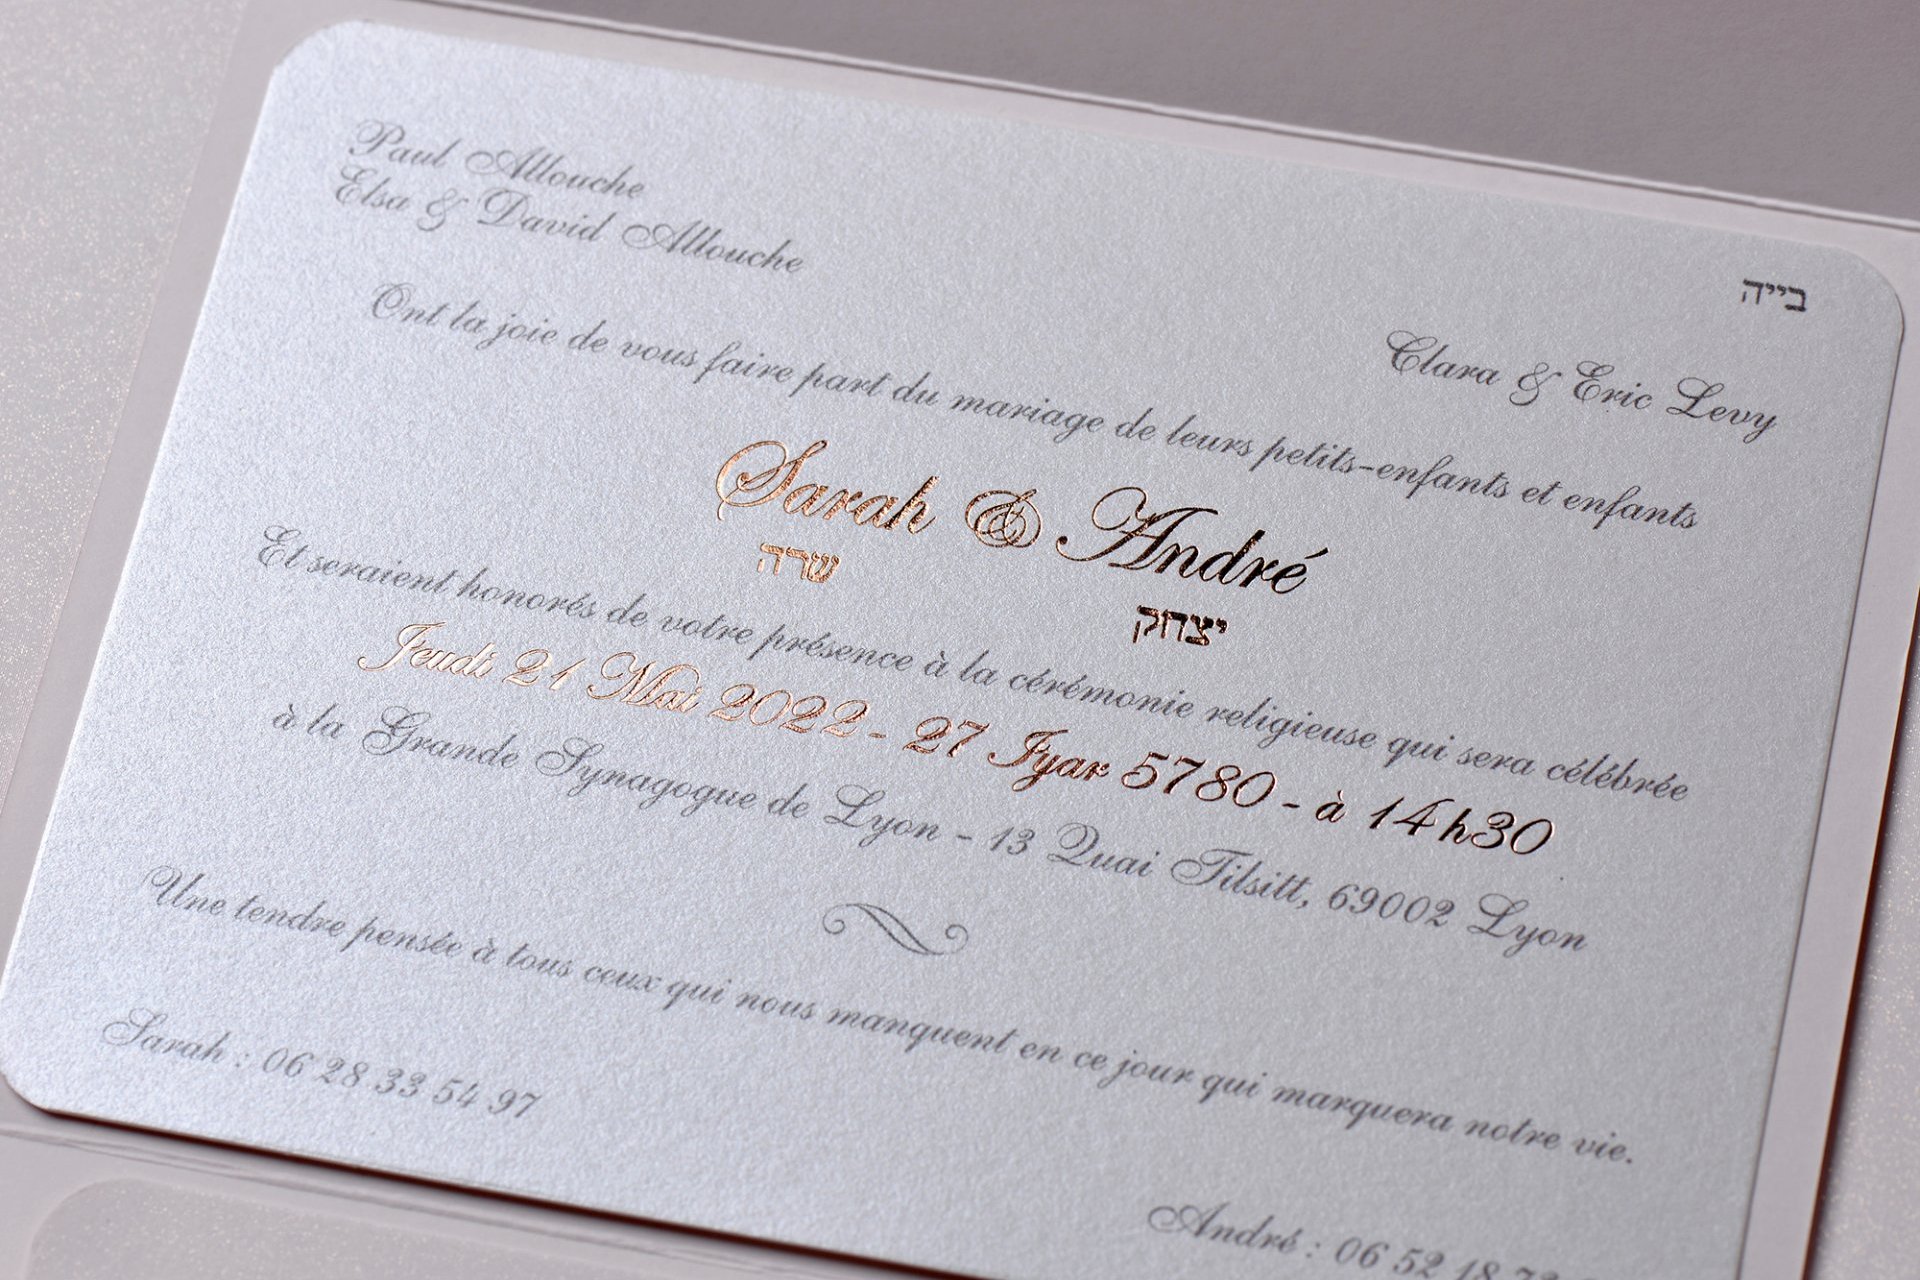 בייה
Paul Allouche
Elsa & David Allouche
Clara & Eric Levy
Ont la joie de vous faire part du mariage de leurs petits-enfants et enfants
Sarah & André
שרה יצחק
Et seraient honorés de votre présence à la cérémonie religieuse qui sera célébrée
Jeudi 21 Mai 2022 - 27 Iyar 5780 - à 14h30
à la Grande Synagogue de Lyon - 13 Quai Tilsitt, 69002 Lyon
Une tendre pensée à tous ceux qui nous manquent en ce jour qui marquera notre vie.
Sarah : 06 28 33 54 97
André : 06 52 18